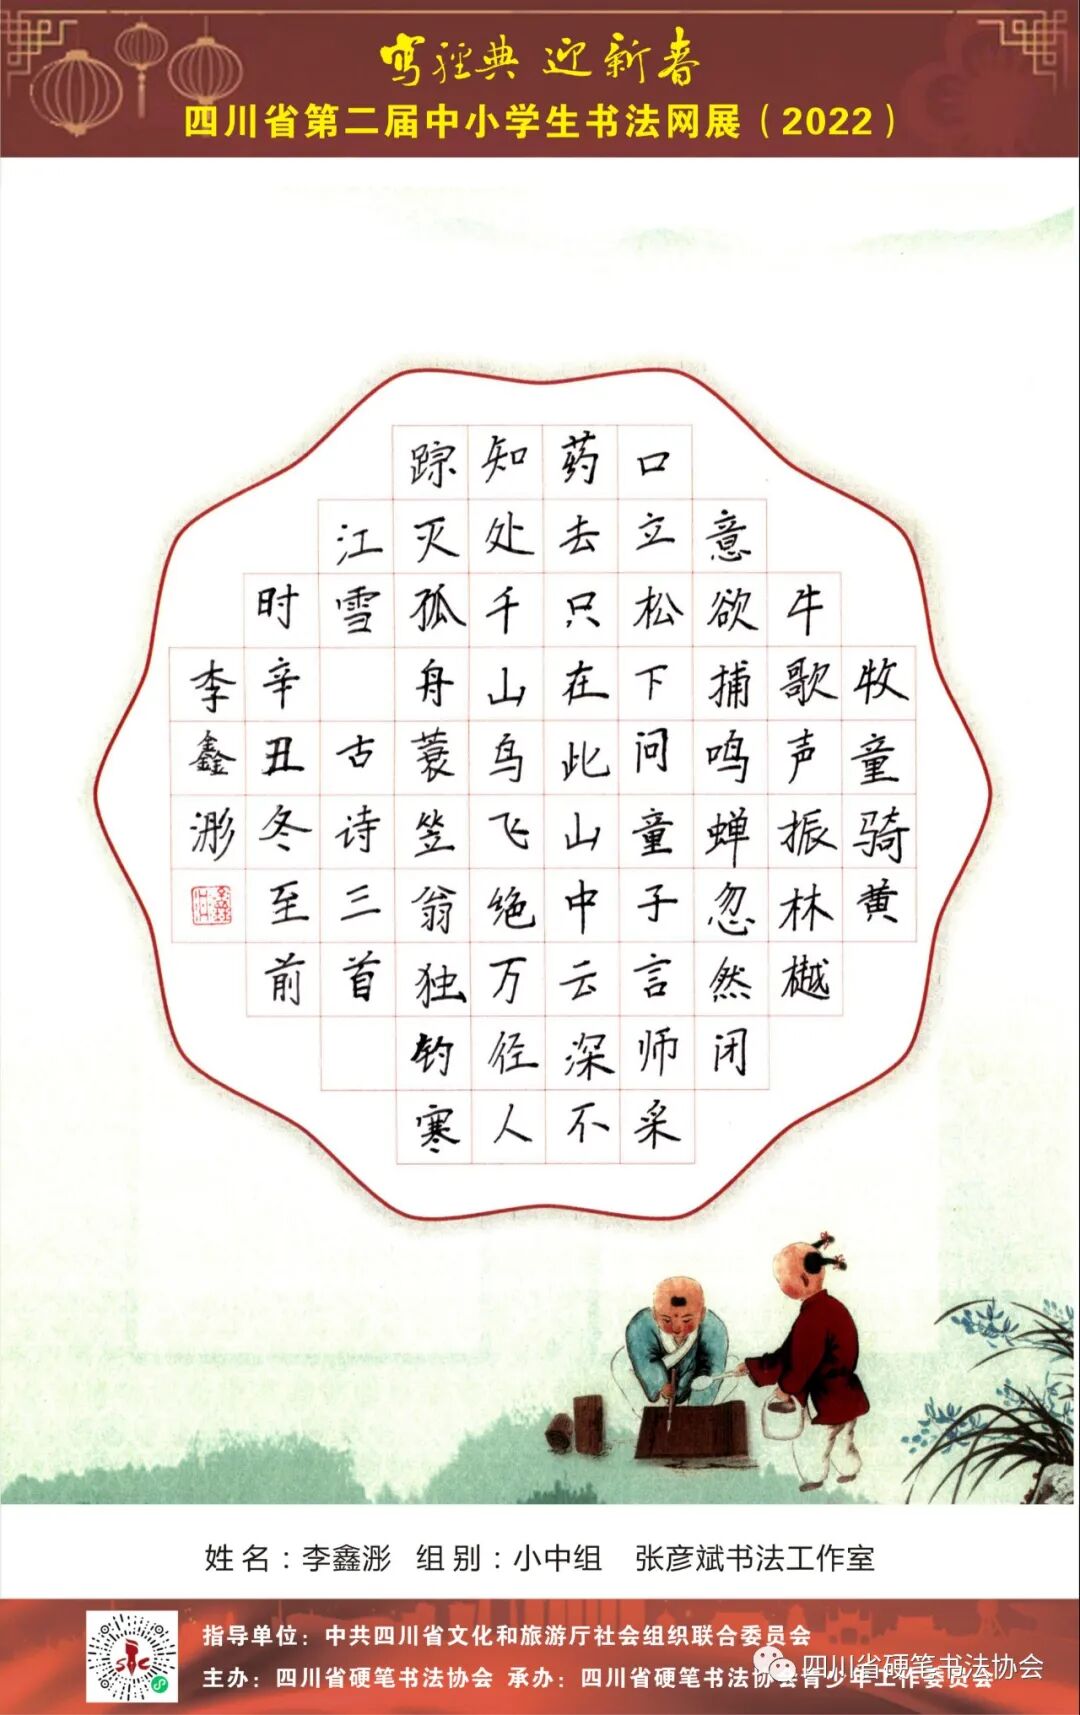 写经典 迎新春
四川省第二届中小学生书法网展（2022）
牧童骑黄
牛歌声振林樾
意欲捕鸣蝉忽然闭
口立松下问童子言师采
药去只在此山中云深不
知处千山鸟飞绝万径人
踪灭孤舟蓑笠翁独钓寒
江雪 古诗三首
时辛丑冬至前
李鑫浵
姓名：李鑫浵 组别：小中组 张彦斌书法工作室
指导单位：中共四川省文化和旅游厅社会组织联合委员会
主办：四川省硬笔书法协会 承办：四川省硬笔书法协会青少年工作委员会
四川省硬笔书法协会